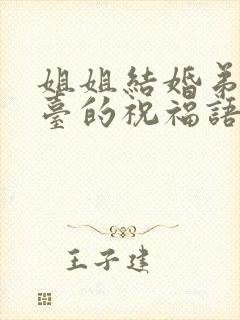 姐姐結婚弟
臺的祝福語
王子建